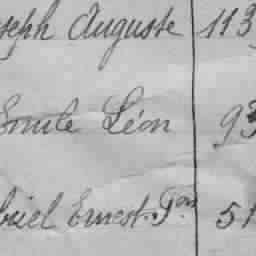 seph Auguste 113
Emile Léon 93
briel Ernest. Jon 51